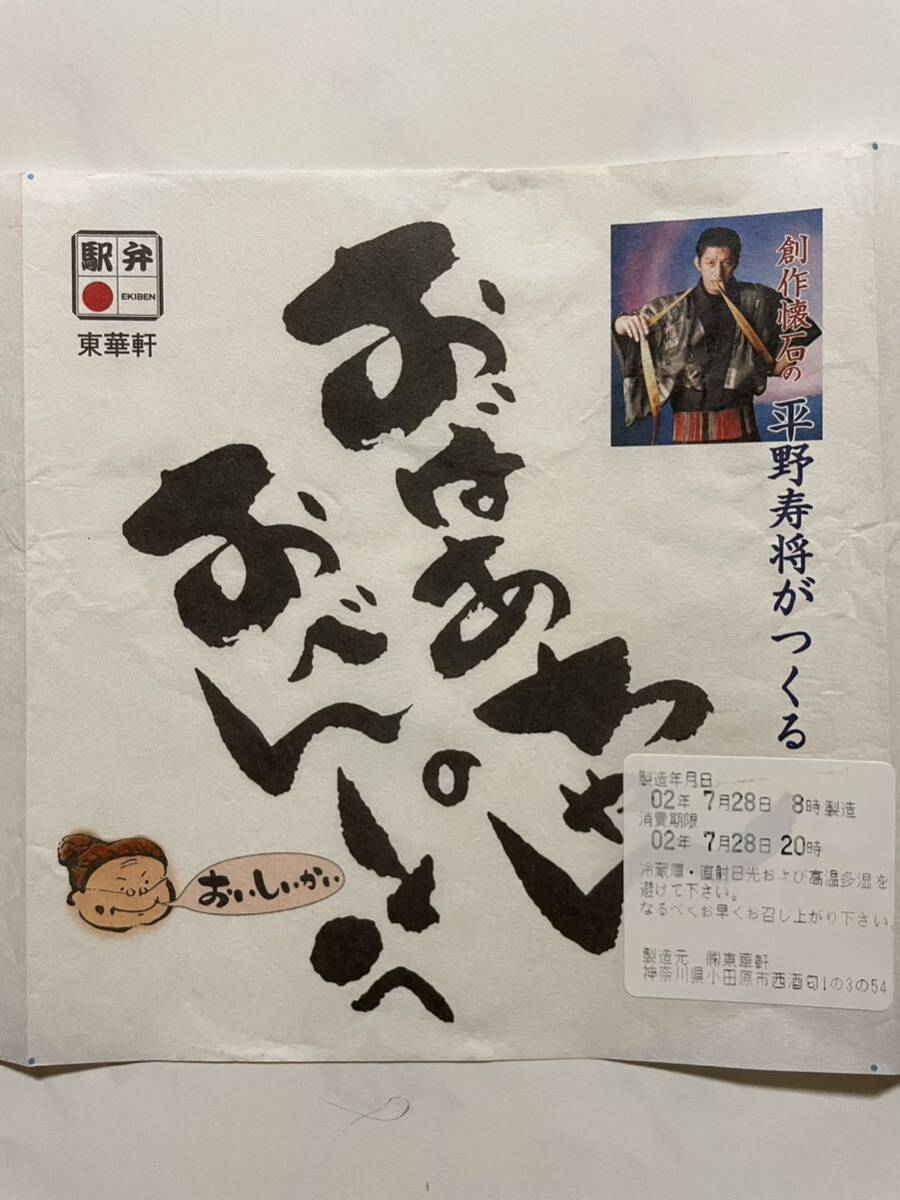 駅弁
EKIBEN
東華軒
創作懐石の
平野寿将がつくる
おばあちゃんの
おべんとう
おいしいかい
製造年月日
02年 7月28日 8時製造
消費期限
02年 7月28日 20時
冷蔵庫・直射日光および高温多湿を
避けて下さい。
なるべくお早くお召し上がり下さい。
製造元 ㈱東華軒
神奈川県小田原市西酒匂1の3の54